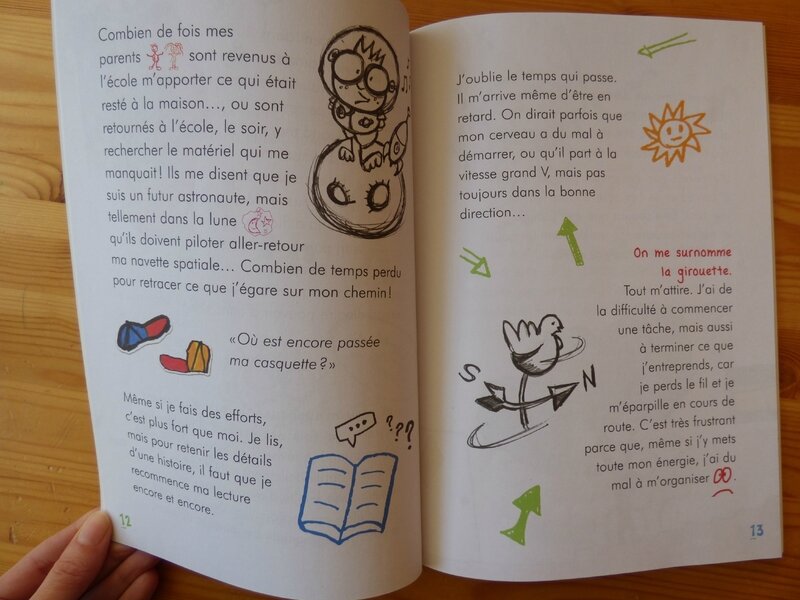 Combien de fois mes
parents sont revenus à
l'école m'apporter ce qui était
resté à la maison..., ou sont
retournés à l'école, le soir, y
rechercher le matériel qui me
manquait! Ils me disent que je
suis un futur astronaute, mais
tellement dans la lune
qu'ils doivent piloter aller-retour
ma navette spatiale... Combien de temps perdu
pour retracer ce que j'égare sur mon chemin!
«Où est encore passée
ma casquette?»
Même si je fais des efforts,
c'est plus fort que moi. Je lis,
mais pour retenir les détails
d'une histoire, il faut que je
recommence ma lecture
encore et encore.
...
???
12
J'oublie le temps qui passe.
Il m'arrive même d'être en
retard. On dirait parfois que
mon cerveau a du mal à
démarrer, ou qu'il part à la
vitesse grand V, mais pas
toujours dans la bonne
direction...
On me surnomme
la girouette.
Tout m'attire. J'ai de
la difficulté à commencer
une tâche, mais aussi
à terminer ce que
j'entreprends, car
je perds le fil et je
m'éparpille en cours de
route. C'est très frustrant
parce que, même si j'y mets
toute mon énergie, j'ai du
mal à m'organiser .
S N
13